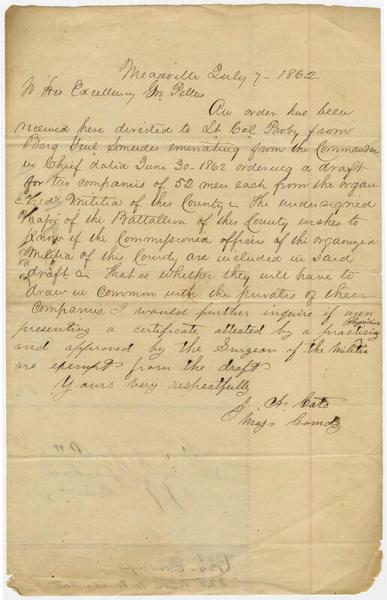 Meadville July 7 - 1862
To His Excellency Gov Pettus
An order has been
received here directed to Lt Col Parby from
Brig Genl Smedes eminating from the Commander
in Chief dated June 30 - 1862 ordering a draft
for two companies of 52 men each from the organ
ized Militia of this County & The undersigned
Major of the Battallion of this County wishes to
know if the Commissioned officers of the organized
Militia of this County are included in said
draft & That is whether they will have to
draw in common with the privates of their
companies. I would further inquire if men
presenting a certificate attested by a practising Physician
and approved by the Surgeon of the Militia
are exempt from the draft
Yours very respectfully
J. A. Cato
Majr Comdg